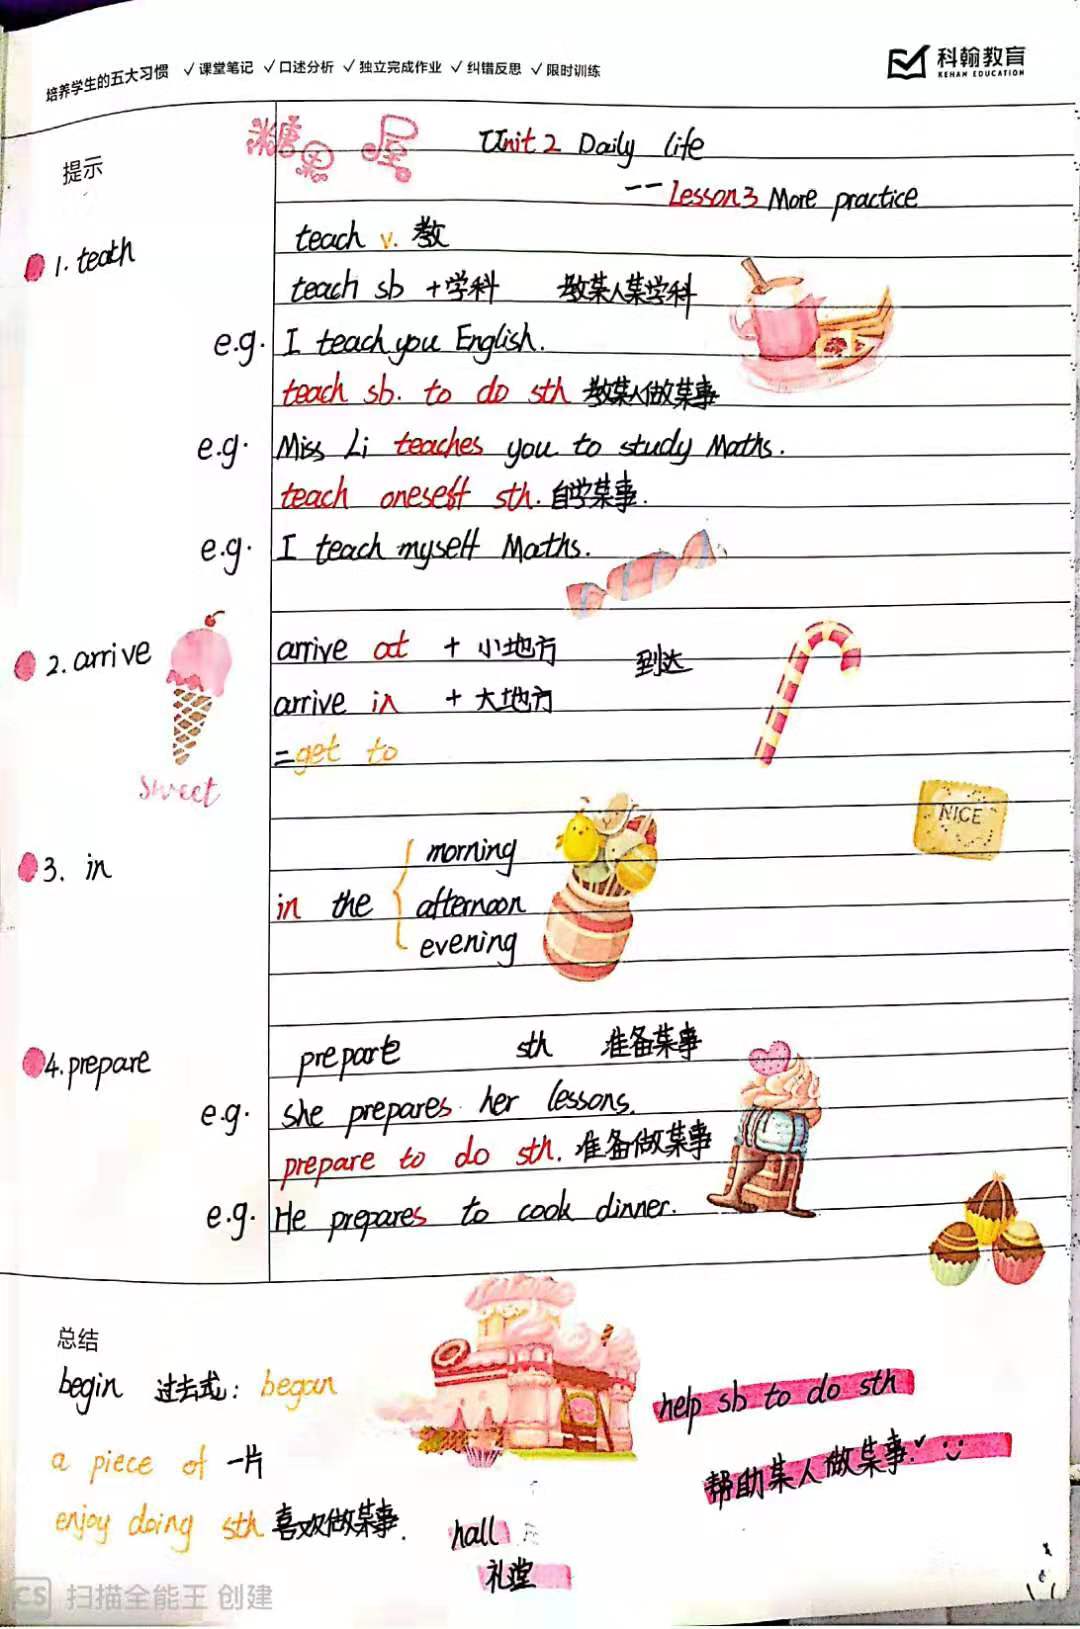 培养学生的五大习惯 ✓课堂笔记 ✓口述分析 ✓独立完成作业 ✓纠错反思 ✓限时训练
科翰教育
KEHAN EDUCATION
糖果屋
Unit 2 Daily life
提示
-- Lesson 3 More practice
1. teath
teach v. 教
teach sb + 学科 教某人某学科
e.g. I teach you English.
teach sb. to do sth 教某人做某事
e.g. Miss Li teaches you to study Maths.
teach oneself sth. 自学某事.
e.g. I teach myself Maths.
2. arrive
arrive at + 小地方 到达
arrive in + 大地方
= get to
Sweet
NICE
3. in
in the { morning
afternoon
evening
4. prepare
prepare sth 准备某事
e.g. she prepares her lessons.
prepare to do sth. 准备做某事
e.g. He prepares to cook dinner.
总结
begin 过去式: began
help sb to do sth
a piece of 一片
帮助某人做某事.
enjoy doing sth 喜欢做某事.
hall
礼堂
CS 扫描全能王 创建